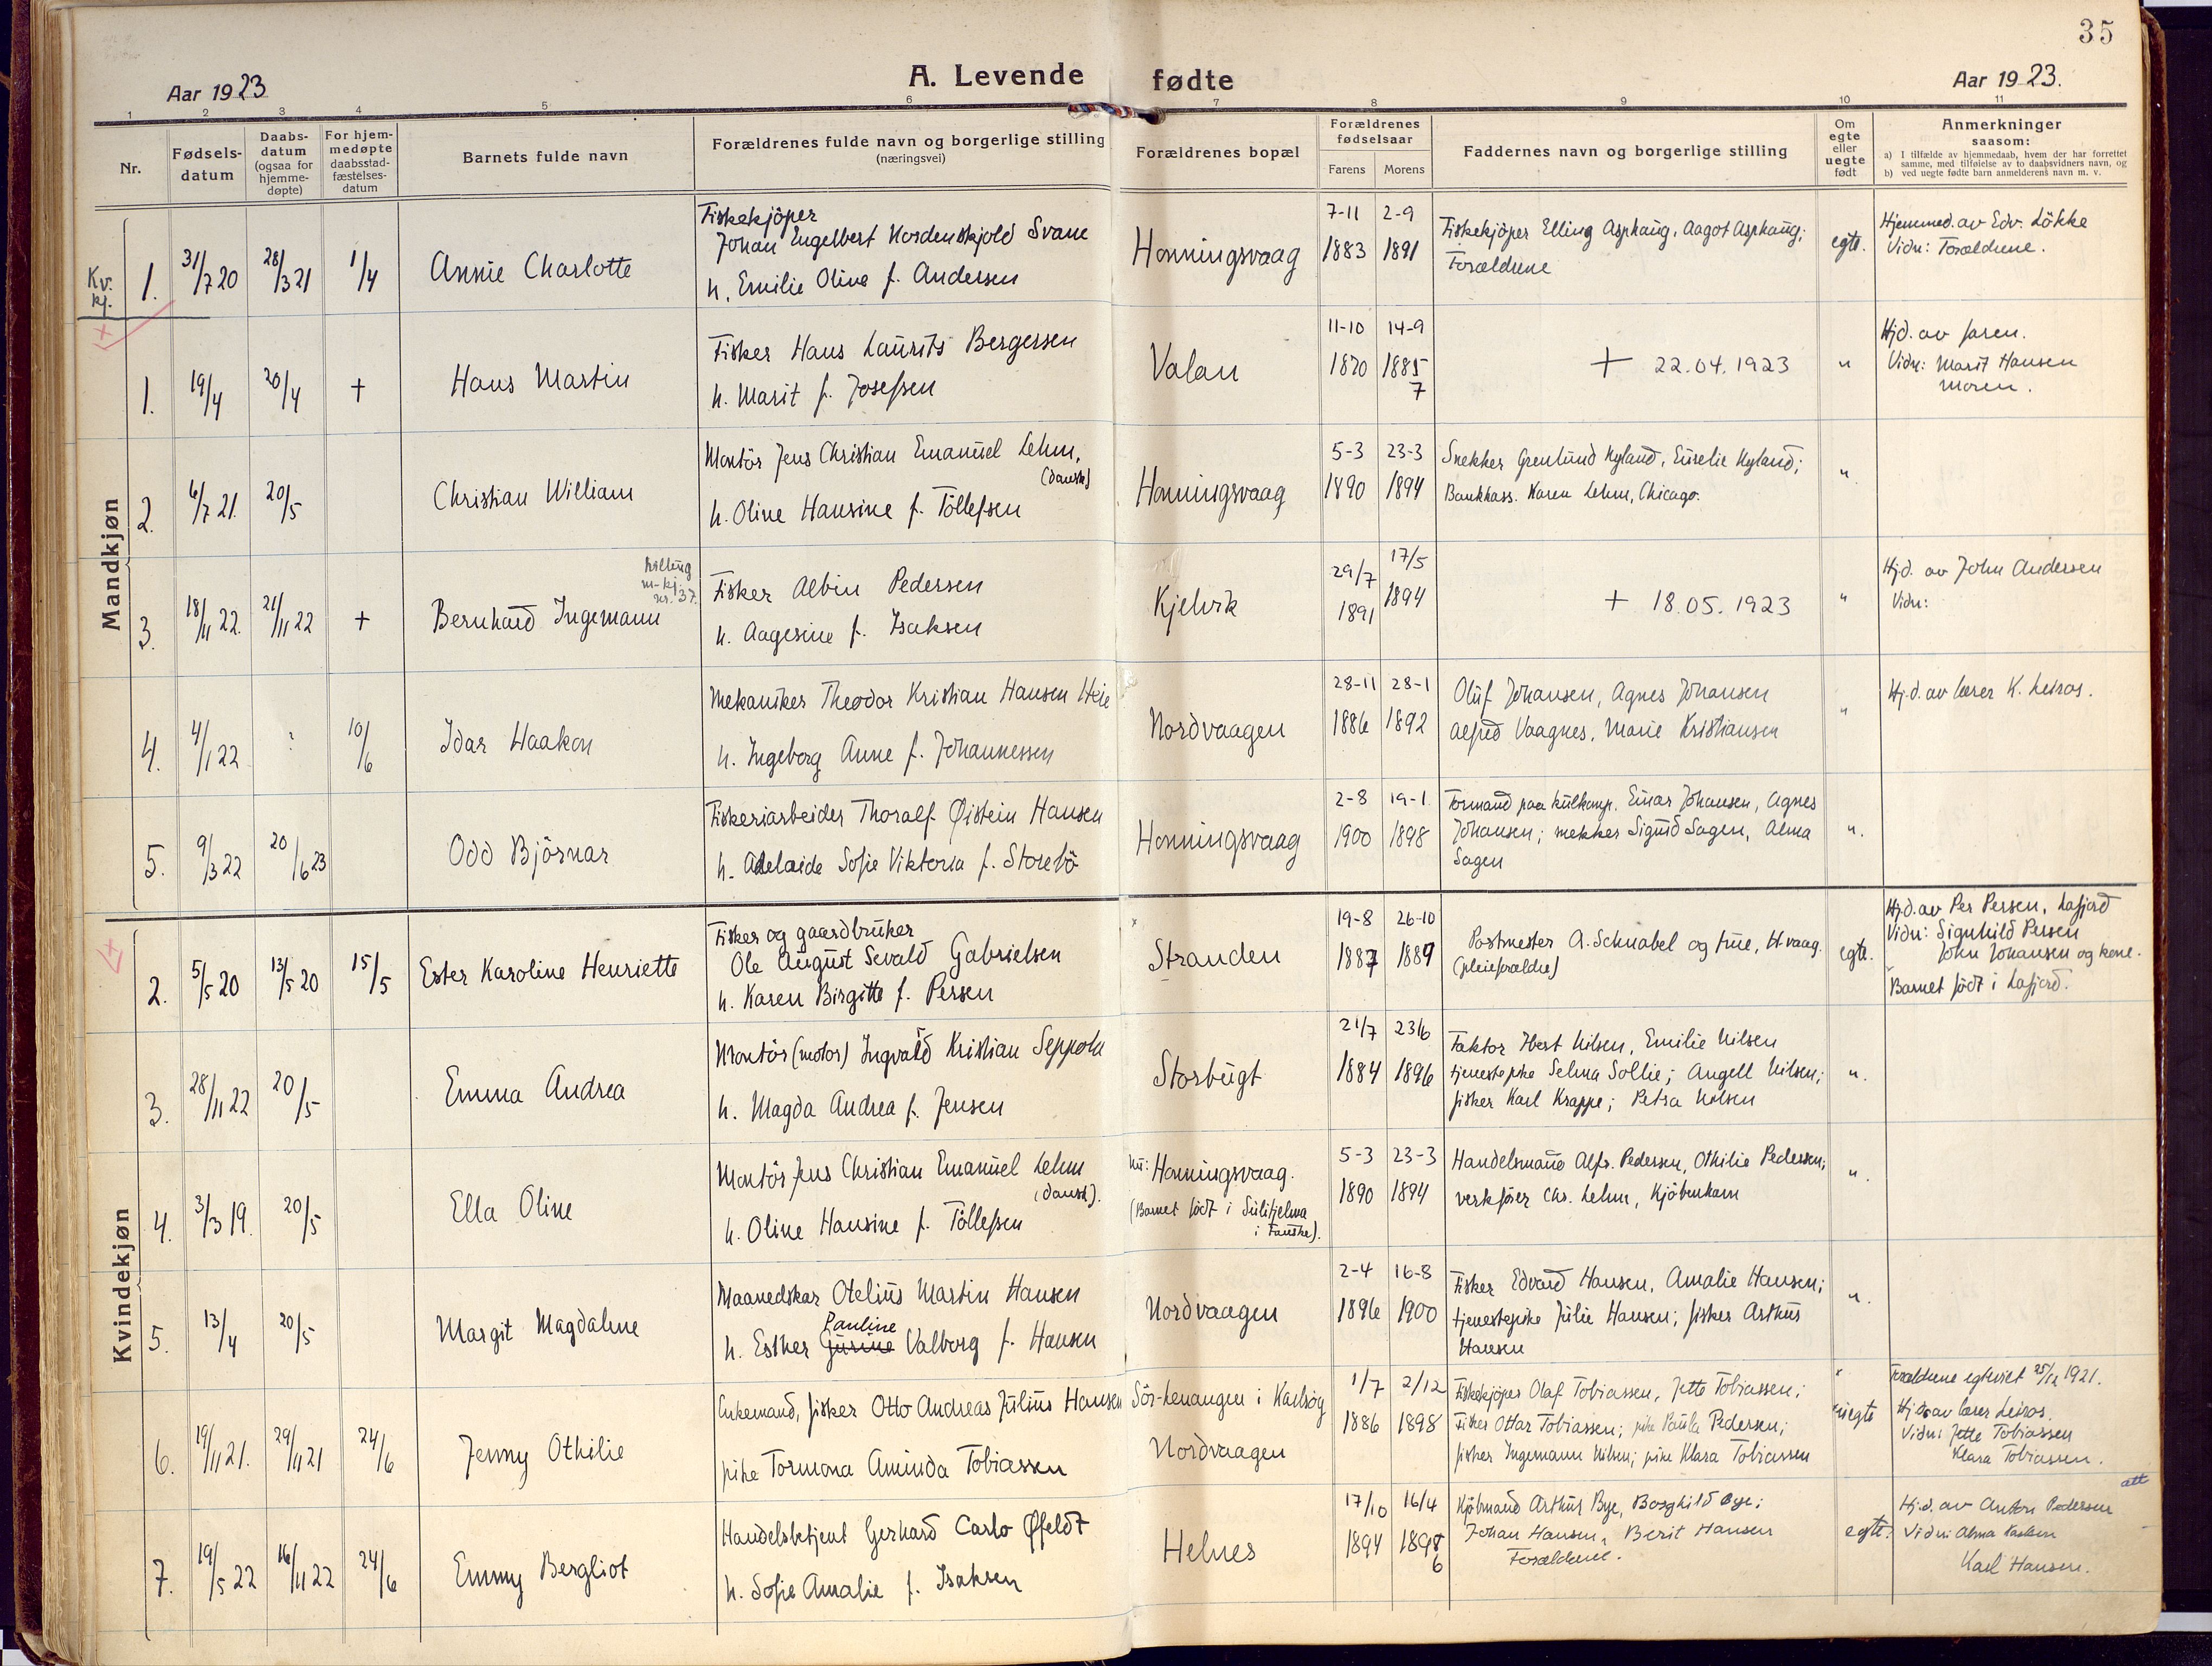 35
Aar 1923
A. Levende fødte
Aar 1923.
1 2 3 4 5 6 7 8 9 10 11
Nr.
Fødsels-
datum
Daabs-
datum
(ogsaa for
hjemme-
døpte)
For hjem-
medøpte
daabsstad-
fæstelses-
datum
Barnets fulde navn
Forældrenes fulde navn og borgerlige stilling
(næringsvei)
Forældrenes bopæl
Forældrenes
fødselsaar
Farens Morens
Faddernes navn og borgerlige stilling
Om
egte
eller
uegte
født
Anmerkninger
saasom:
a) I tilfælde av hjemmedaab, hvem der har forrettet
samme, med tilføielse av to daabsvidners navn, og
b) ved uegte fødte barn anmelderens navn m. v.
Kv.
kj.
1. 31/7 20 28/3 21 1/4 Annie Charlotte
Fiskekjöper
Johan Engelbert Nordenskjold Svane
h. Emilie Oline f. Andersen
Honningsvaag
7-11 2-9
1883 1891
Fiskekjöper Elling Asphaug, Aagot Asphaug;
Forældrene
egte.
Hjemmed. av Edv. Lökke
Vidn: Forældrene.
Mandkjøn
1. 19/4 20/4 + Hans Martin
Fisker Hans Laurits Bergersen
h. Marit f. Josefsen
Valan
11-10 14-9
1870 1885
7
+ 22.04.1923
"
Hjd. av faren.
Vidn: Marit Hansen
Moren.
2. 6/7 21. 20/5 Christian William
Montör Jens Christian Emanuel Lehm,
(dansk)
h. Oline Hansine f. Töllefsen
Honningsvaag
5-3 23-3
1890 1894
Snekker Grenlund Nyland, Eurelie Nyland;
Bankkass. Karen Lehm, Chicago.
"
3. 18/11 22. 21/11 22 + Bernhard Ingemann
tvilling
m-kj.
nr. 37.
Fisker Albin Pedersen
h. Aagesine f. Isaksen
Kjelvik
29/7 17/5
1891 1894
+ 18.05.1923
"
Hjd. av John Andersen
Vidn:
4. 4/1 22 : 10/6 Idar Haakon
Mekaniker Theodor Kristian Hansen Heie
h. Ingeborg Anne f. Johannessen
Nordvaagen
28-11 28-1
1886 1892
Oluf Johansen, Agnes Johansen
Alfred Vaagnes, Marie Kristiansen
"
Hj.d. av lærer K. Leiros.
5. 9/3 22 20/6 23 Odd Björnar
Fiskeriarbeider Thoralf Øistein Hansen
h. Adelaide Sofie Viktoria f. Storebö
Honningsvaag
2-8 19-1.
1900 1898
Formand paa kulkomp. Einar Johansen, Agnes
Johansen; snekker Sigurd Sagen, Alma
Sagen
"
Kvindekjøn
2. 5/5 20 13/5 20 15/5 Ester Karoline Henriette
Fisker og gaardbruker
Ole August Sevald Gabrielsen
h. Karen Birgitte f. Persen
Stranden
19-8 26-10
1887 1889
Postmester A. Schnabel og frue, Hvaag.
(pleieforældre)
egte.
Hjd. av Per Persen, Lafjord
Vidn: Signhild Persen
John Johansen og kone.
Barnet födt i Lafjord.
3. 28/11 22 20/5 Emma Andrea
Montör (motor) Ingvald Kristian Seppola
h. Magda Andrea f. Jensen
Storbugt
21/7 23/6
1884 1896
Faktor Hert Nilsen, Emilie Nilsen
tjenestepike Selma Sollie; Angell Nilsen;
fisker Karl Krappe; Petra Nilsen
"
4. 3/3 19. 20/5 Ella Oline
Montör Jens Christian Emanuel Lehm
(dansk).
h. Oline Hansine f. Töllefsen
nu: Honningsvaag.
(Barnet födt i Sulitjelma
i Fauske).
5-3 23-3
1890 1894
Handelsmand Alfr. Pedersen, Othilie Pedersen;
verkförer Chr. Lehm, Kjöbenhavn
"
5. 13/4 20/5 Margit Magdalene
Maanedskar Otelius Martin Hansen
Pauline
h. Esther Gurine Valborg f. Hansen
Nordvaagen
2-4 16-8
1896 1900
Fisker Edvard Hansen, Amalie Hansen;
tjenestepike Julie Hansen; fisker Arthur
Hansen
"
6. 19/11 21. 29/11 21 24/6 Jenny Othilie
Enkemand, fisker Otto Andreas Julius Hansen
pike Tormona Aminda Tobiassen
Sör-Lenangen i Karlsöy
Nordvaagen
1/7 2/12
1886 1898
Fiskekjöper Olaf Tobiassen, Jette Tobiassen;
Fisker Ottar Tobiassen; pike Paula Pedersen;
fisker Ingemann Nilsen; pike Klara Tobiassen
uegte
Forældrene egteviet 25/12 1921.
Hjd. av lærer Leiros.
Vidn: Jette Tobiassen
Klara Tobiassen.
7. 19/5 22 16/11 22 24/6 Emmy Bergliot
Handelsbetjent Gerhard Carlo Øfeldt
h. Sofie Amalie f. Isaksen
Helnes
17/10 16/4
1894 1898
6
Kjöbmand Arthur Bye, Borghild Bye;
Johan Hansen, Berit Hansen
Forældrene.
egte.
att
Hj.d. av Anton Pedersen
Vidn: Alma Isaksen
Karl Hansen.